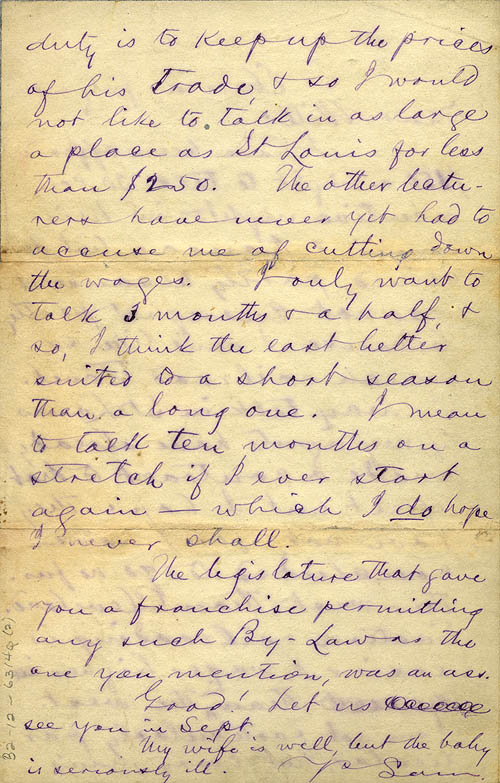 duty is to keep up the prices
of his trade, & so I would
not like to talk in as large
a place as St Louis for less
than $250. The other lectu-
rers have never yet had to
accuse me of cutting down
the wages. I only want to
talk 3 months & a half, &
so, I think the east better
suited to a short season
than a long one. I mean
to talk ten months on a
stretch if I ever start
again — which I do hope
I never shall.
The legislature that gave
you a franchise permitting
any such By-Law as the
one you mention, was an ass.
Good! Let us
see you in Sept.
My wife is well, but the baby
is seriously ill. Yrs Sam